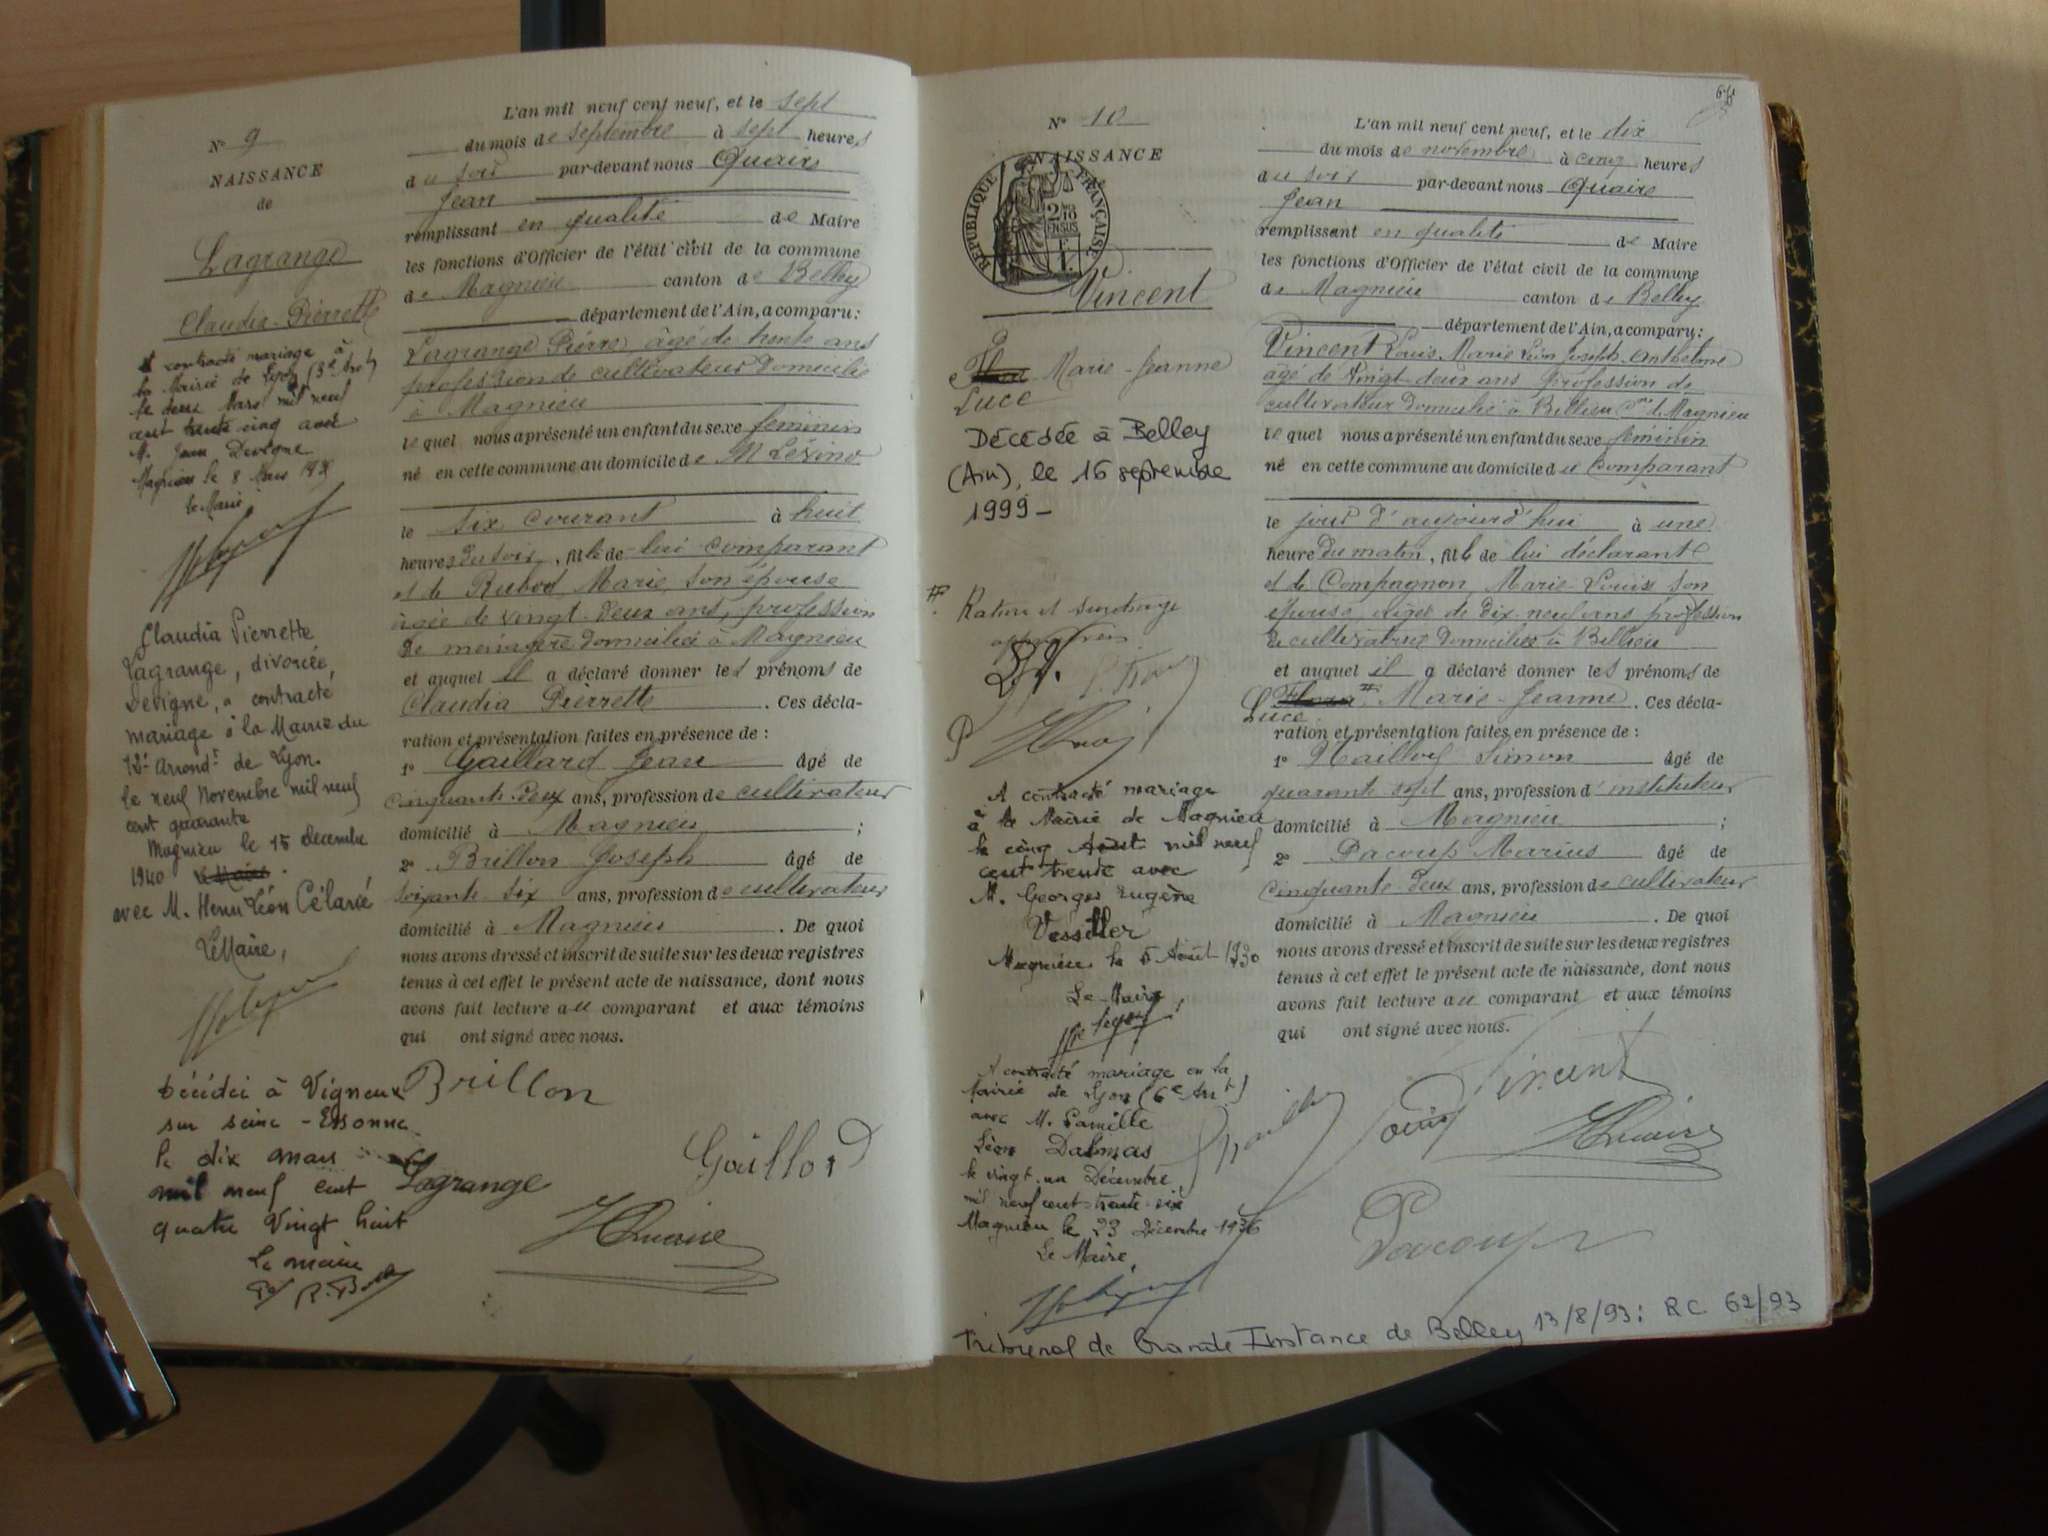 N° 9
NAISSANCE
de
Lagrange
Claudia-Pierrette
A contracté mariage à
la Mairie de Lyon (3e Arrt)
le deux Mars mil neuf
cent trente cinq avec
M. Jean Devigne
Magnieu le 8 Mars 1935
Le Maire
Claudia Pierrette
Lagrange, divorcée,
Devigne, a contracté
mariage à la Mairie du
12e Arrondt de Lyon.
le neuf Novembre mil neuf
cent quarante
Magnieu le 15 décembre
1940 Le Maire.
avec M. Henri Léon Célarié
Le Maire,
Décédée à Vigneux
sur Seine - Essonne
le dix mars
mil neuf cent
quatre vingt huit
Le maire
L'an mil neuf cent neuf, et le sept
du mois de septembre à sept heures
du soir par-devant nous Quaire
Jean
remplissant en qualité de Maire
les fonctions d'Officier de l'état civil de la commune
de Magnieu canton de Belley
département de l'Ain, a comparu:
Lagrange Pierre, âgé de trente ans
profession de cultivateur domicilié
à Magnieu
lequel nous a présenté un enfant du sexe féminin
né en cette commune au domicile de
le six courant à huit
heures du soir, fille de lui comparant
et de Rubod Marie, son épouse
âgée de vingt-deux ans, profession
de ménagère domiciliée à Magnieu
et auquel il a déclaré donner les prénoms de
Claudia Pierrette. Ces décla-
ration et présentation faites en présence de:
1° Gaillard Jean âgé de
cinquante-deux ans, profession de cultivateur
domicilié à Magnieu;
2° Brillon Joseph âgé de
soixante-six ans, profession de cultivateur
domicilié à Magnieu. De quoi
nous avons dressé et inscrit de suite sur les deux registres
tenus à cet effet le présent acte de naissance, dont nous
avons fait lecture au comparant et aux témoins
qui ont signé avec nous.
Brillon
Gaillard
Lagrange
JQuaire
N° 10
NAISSANCE
RÉPUBLIQUE FRANÇAISE
2/10 EN SUS
Vincent
Marie-Jeanne
Luce
Décédée à Belley
(Ain), le 16 septembre
1999-
Rature et surcharge
approuvées
A contracté mariage
à la Mairie de Magnieu
le cinq Août mil neuf
cent trente avec
M. Georges Eugène
Magnieu le 5 Août 1930
Le Maire
A contracté mariage en la
Mairie de Lyon (6e Arrt)
avec M. Camille
Léon Dalmas
le vingt-un Décembre
mil neuf cent trente-six
Magnieu le 23 Décembre 1936
Le Maire,
L'an mil neuf cent neuf, et le dix
du mois de novembre à cinq heures
du soir par-devant nous Quaire
Jean
remplissant en qualité de Maire
les fonctions d'Officier de l'état civil de la commune
de Magnieu canton de Belley
département de l'Ain, a comparu:
Vincent Louis Marie Léon Joseph Anthelme
âgé de vingt-deux ans profession de
cultivateur domicilié à Billieu Cne de Magnieu
lequel nous a présenté un enfant du sexe féminin
né en cette commune au domicile du comparant
le jour d'aujourd'hui à une
heure du matin, fille de lui déclarant
et de Compagnon Marie-Louise son
épouse âgée de dix-neuf ans profession
de cultivatrice domiciliée à Billieu
et auquel il a déclaré donner les prénoms de
Marie-Jeanne. Ces décla-
Luce.
ration et présentation faites en présence de:
1° Simon âgé de
quarante-sept ans, profession d'instituteur
domicilié à Magnieu;
2° Pacoup Marius âgé de
cinquante-deux ans, profession de cultivateur
domicilié à Magnieu. De quoi
nous avons dressé et inscrit de suite sur les deux registres
tenus à cet effet le présent acte de naissance, dont nous
avons fait lecture au comparant et aux témoins
qui ont signé avec nous.
Vincent
Louis
JQuaire
Pacoup
Tribunal de Grande Instance de Belley 13/8/93: RC 62/93